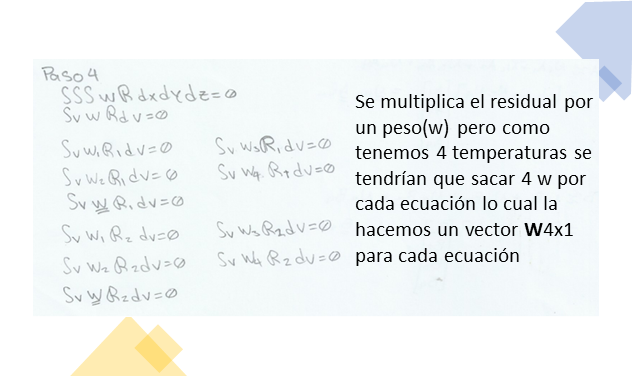 Paso 4
SSS w R dxdydz=0
Sv w R dv=0
Sv w1 R1 dv=0 Sv w3 R1 dv=0
Sv w2 R1 dv=0 Sv w4 R1 dv=0
Sv w R1 dv=0
Sv w1 R2 dv=0 Sv w3 R2 dv=0
Sv w2 R2 dv=0 Sv w4 R2 dv=0
Sv w R2 dv=0
Se multiplica el residual por
un peso(w) pero como
tenemos 4 temperaturas se
tendrían que sacar 4 w por
cada ecuación lo cual la
hacemos un vector W4x1
para cada ecuación